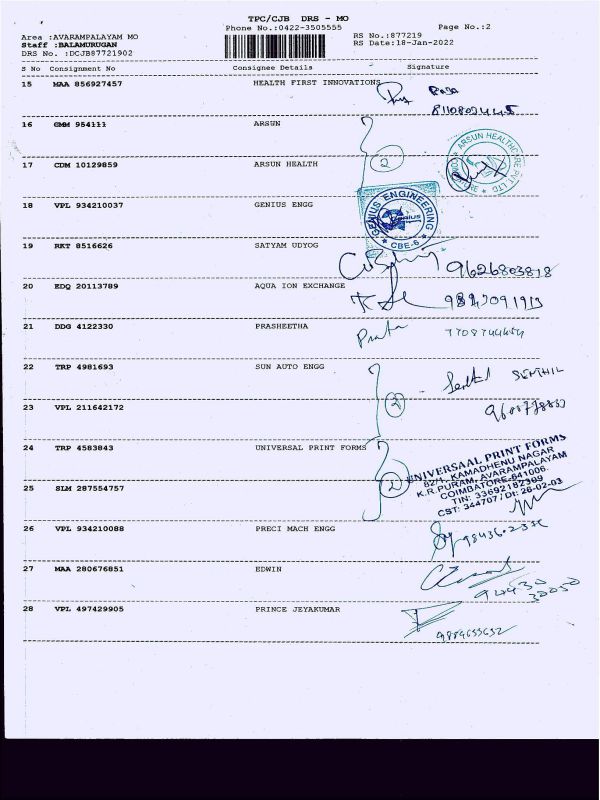 TPC/CJB DRS - MO
Phone No.:0422-3505555
Page No.:2
Area :AVARAMPALAYAM MO
RS No.:877219
Staff :BALAMURUGAN
RS Date:18-Jan-2022
DRS No. :DCJB87721902
S No Consignment No Consignee Details Signature
15 MAA 856927457 HEALTH FIRST INNOVATIONS
16 GMM 954111 ARSUN
2
ARSUN HEALTHCARE PVT LTD
17 CDM 10129859 ARSUN HEALTH
18 VPL 934210037 GENIUS ENGG
GENIUS ENGINEERING
GENIUS
* CBE-6 *
19 RKT 8516626 SATYAM UDYOG
9626803818
20 EDQ 20113789 AQUA ION EXCHANGE
21 DDG 4122330 PRASHEETHA
22 TRP 4981693 SUN AUTO ENGG
SENTHIL
23 VPL 211642172
2
24 TRP 4583843 UNIVERSAL PRINT FORMS
UNIVERSAAL PRINT FORMS
82/1, KAMADHENU NAGAR
K.R.PURAM, AVARAMPALAYAM
COIMBATORE-641006.
TIN: 33692182309
CST: 344707 / Dt: 26-02-03
25 SLM 287554757
26 VPL 934210088 PRECI MACH ENGG
27 MAA 280676851 EDWIN
28 VPL 497429905 PRINCE JEYAKUMAR